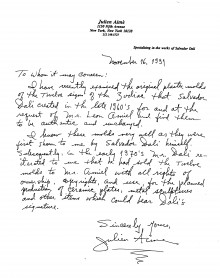 Julien Aimé
1130 Fifth Avenue
New York, New York 10128
Specializing in the works of Salvador Dali
November 16, 1991
To whom it may concern:
I have recently examined the original plaster molds
of the Twelve signs of the Zodiac that Salvador
Dali created in the late 1960's, for and at the
request of Mr. Leon Amiel and find them
to be authentic and unchanged.
I know these molds very well as they were
first shown to me by Salvador Dali himself.
Subsequently, in the early 1970's Mr. Dali re-
iterated to me that he had sold the Twelve
molds to Mr. Amiel with all rights of
ownership, copyrights, and uses, for the planned
production of ceramic plates, metal sculptures
and other items which could bear Dali's
signature.
Sincerely Yours,
Julien Aime